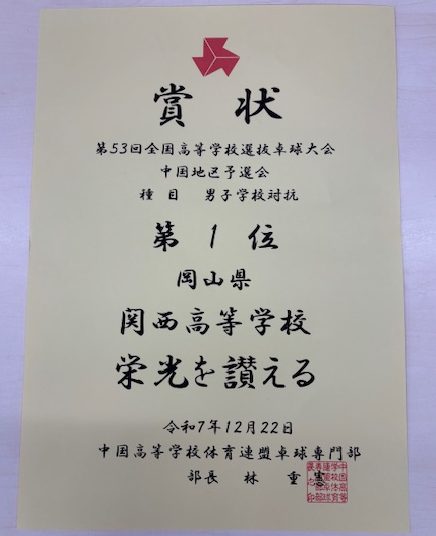 賞状
第53回全国高等学校選抜卓球大会
中国地区予選会
種目 男子学校対抗
第1位
岡山県
関西高等学校
栄光を讃える
令和7年12月22日
中国高等学校体育連盟卓球専門部
部長 林 重憲